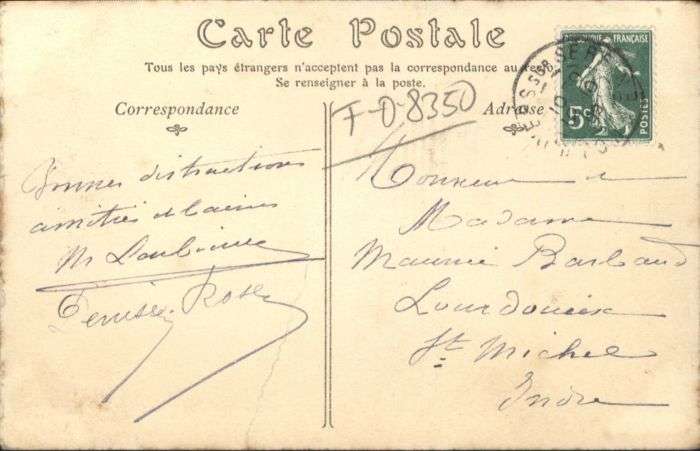 Carte Postale
Tous les pays étrangers n'acceptent pas la correspondance au
Se renseigner à la poste.
Correspondance
Adresse
F-D-8350
FRANÇAISE
5c
POSTES
Bonnes distractions
amitiés et
Denise Rose
Monsieur e
Madame
Maurice Barbaud
Lourdoueix
St Michel
Indre